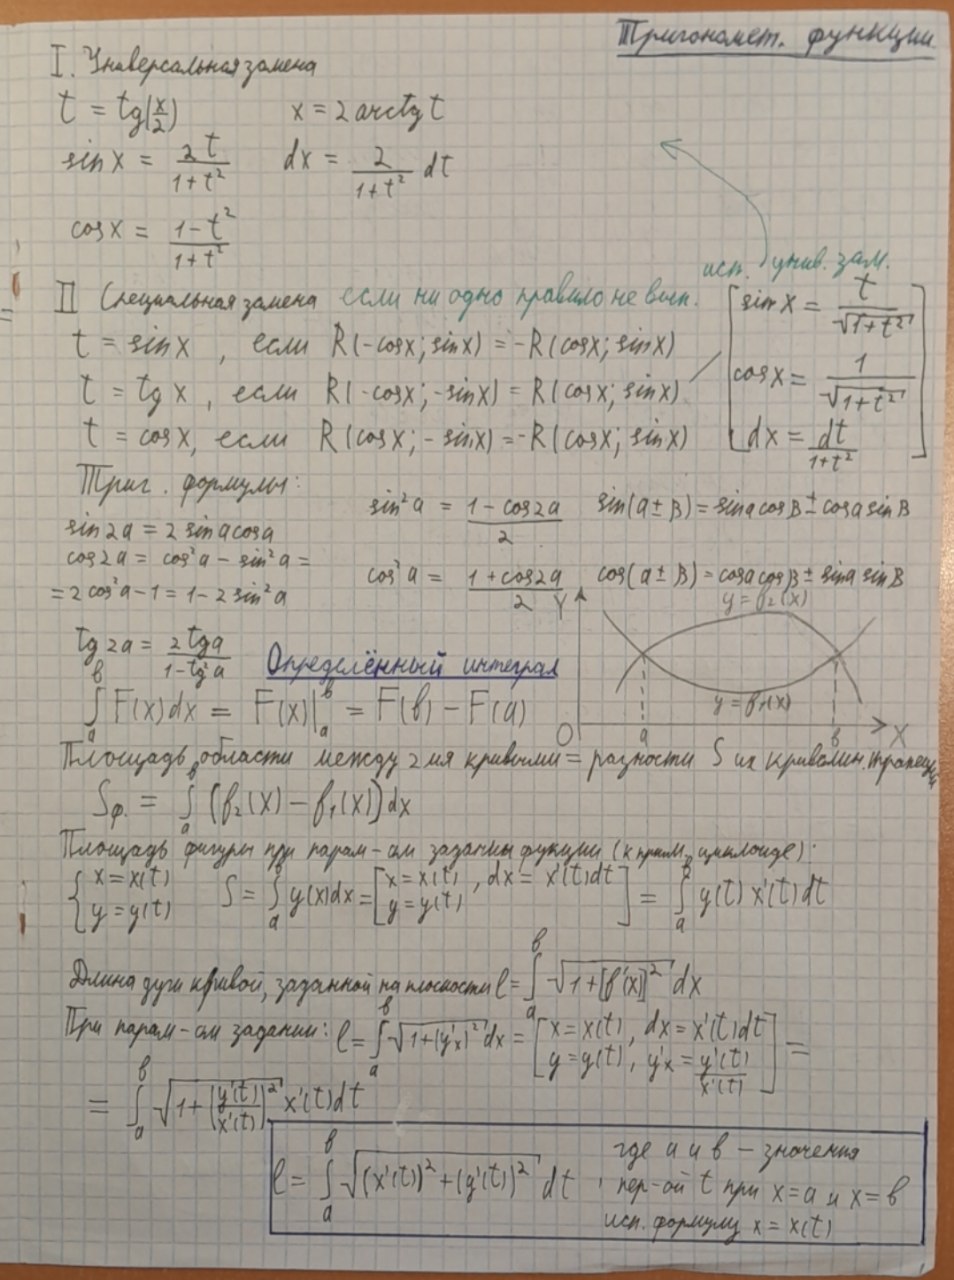 Тригономет. функции
I. Универсальная замена
t = tg(x/2)    x = 2 arctg t
sin x = 2t/(1+t²)    dx = 2/(1+t²) dt
cos x = (1-t²)/(1+t²)
исп. унив. зам.
II Специальная замена если ни одно правило не вып.
t = sin x, если R(-cos x; sin x) = -R(cos x; sin x)
t = tg x, если R(-cos x; -sin x) = R(cos x; sin x)
t = cos x, если R(cos x; -sin x) = -R(cos x; sin x)
[sin x = t/√(1+t²)
cos x = 1/√(1+t²)
dx = dt/(1+t²)]
Триг. формулы:
sin 2a = 2 sin a cos a
cos 2a = cos² a - sin² a =
= 2 cos² a - 1 = 1 - 2 sin² a
tg 2a = 2 tg a/(1 - tg² a)
sin² a = (1 - cos 2a)/2    sin(a ± B) = sin a cos B ± cos a sin B
cos² a = (1 + cos 2a)/2    cos(a ± B) = cos a cos B ± sin a sin B
Y    y = f₂(x)
y = f₁(x)
O    a    в    X
Определённый интеграл
∫ₐᵇ F(x) dx = F(x)|ₐᵇ = F(в) - F(a)
Площадь области между 2мя кривыми = разности S их криволин. трапец
Sф. = ∫ₐᵇ (f₂(x) - f₁(x)) dx
Площадь фигуры при парам-ом задании фукции (к прим. циклоиде):
{x = x(t)  y = y(t)    S = ∫ₐᵇ y(x)dx = [x = x(t), dx = x'(t)dt  y = y(t)] = ∫ₐᵇ y(t) x'(t) dt
Длина дуги кривой, заданной на плоскости l = ∫ₐᵇ √(1+[f'(x)]²) dx
При парам-ом задании: l = ∫ₐᵇ √(1+(y'x)²) dx = [x = x(t), dx = x'(t)dt  y = y(t), y'x = y'(t)/x'(t)] =
= ∫ₐᵇ √(1+(y'(t)/x'(t))²) x'(t)dt
l = ∫ₐᵇ √((x'(t))² + (y'(t))²) dt,
где a и в – значения
пер-ой t при x = a и x = в
исп. формулу x = x(t)